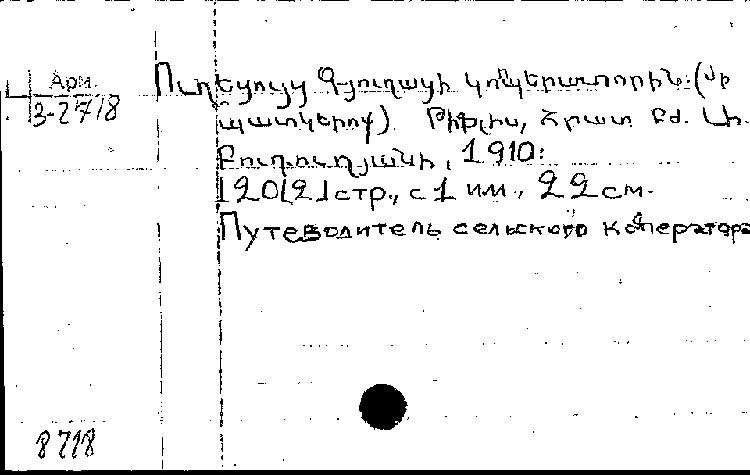 Арм.
3-2718
Ուղեցույց Գյուղացի կոպերատորին. (մի
պատկերով) Թիֆլիս, Հրատ Բժ. Ս.
Բուդուղյանի, 1910:
120[2]стр., с 1 им., 22 см.
Путеводитель сельского коператора
8718